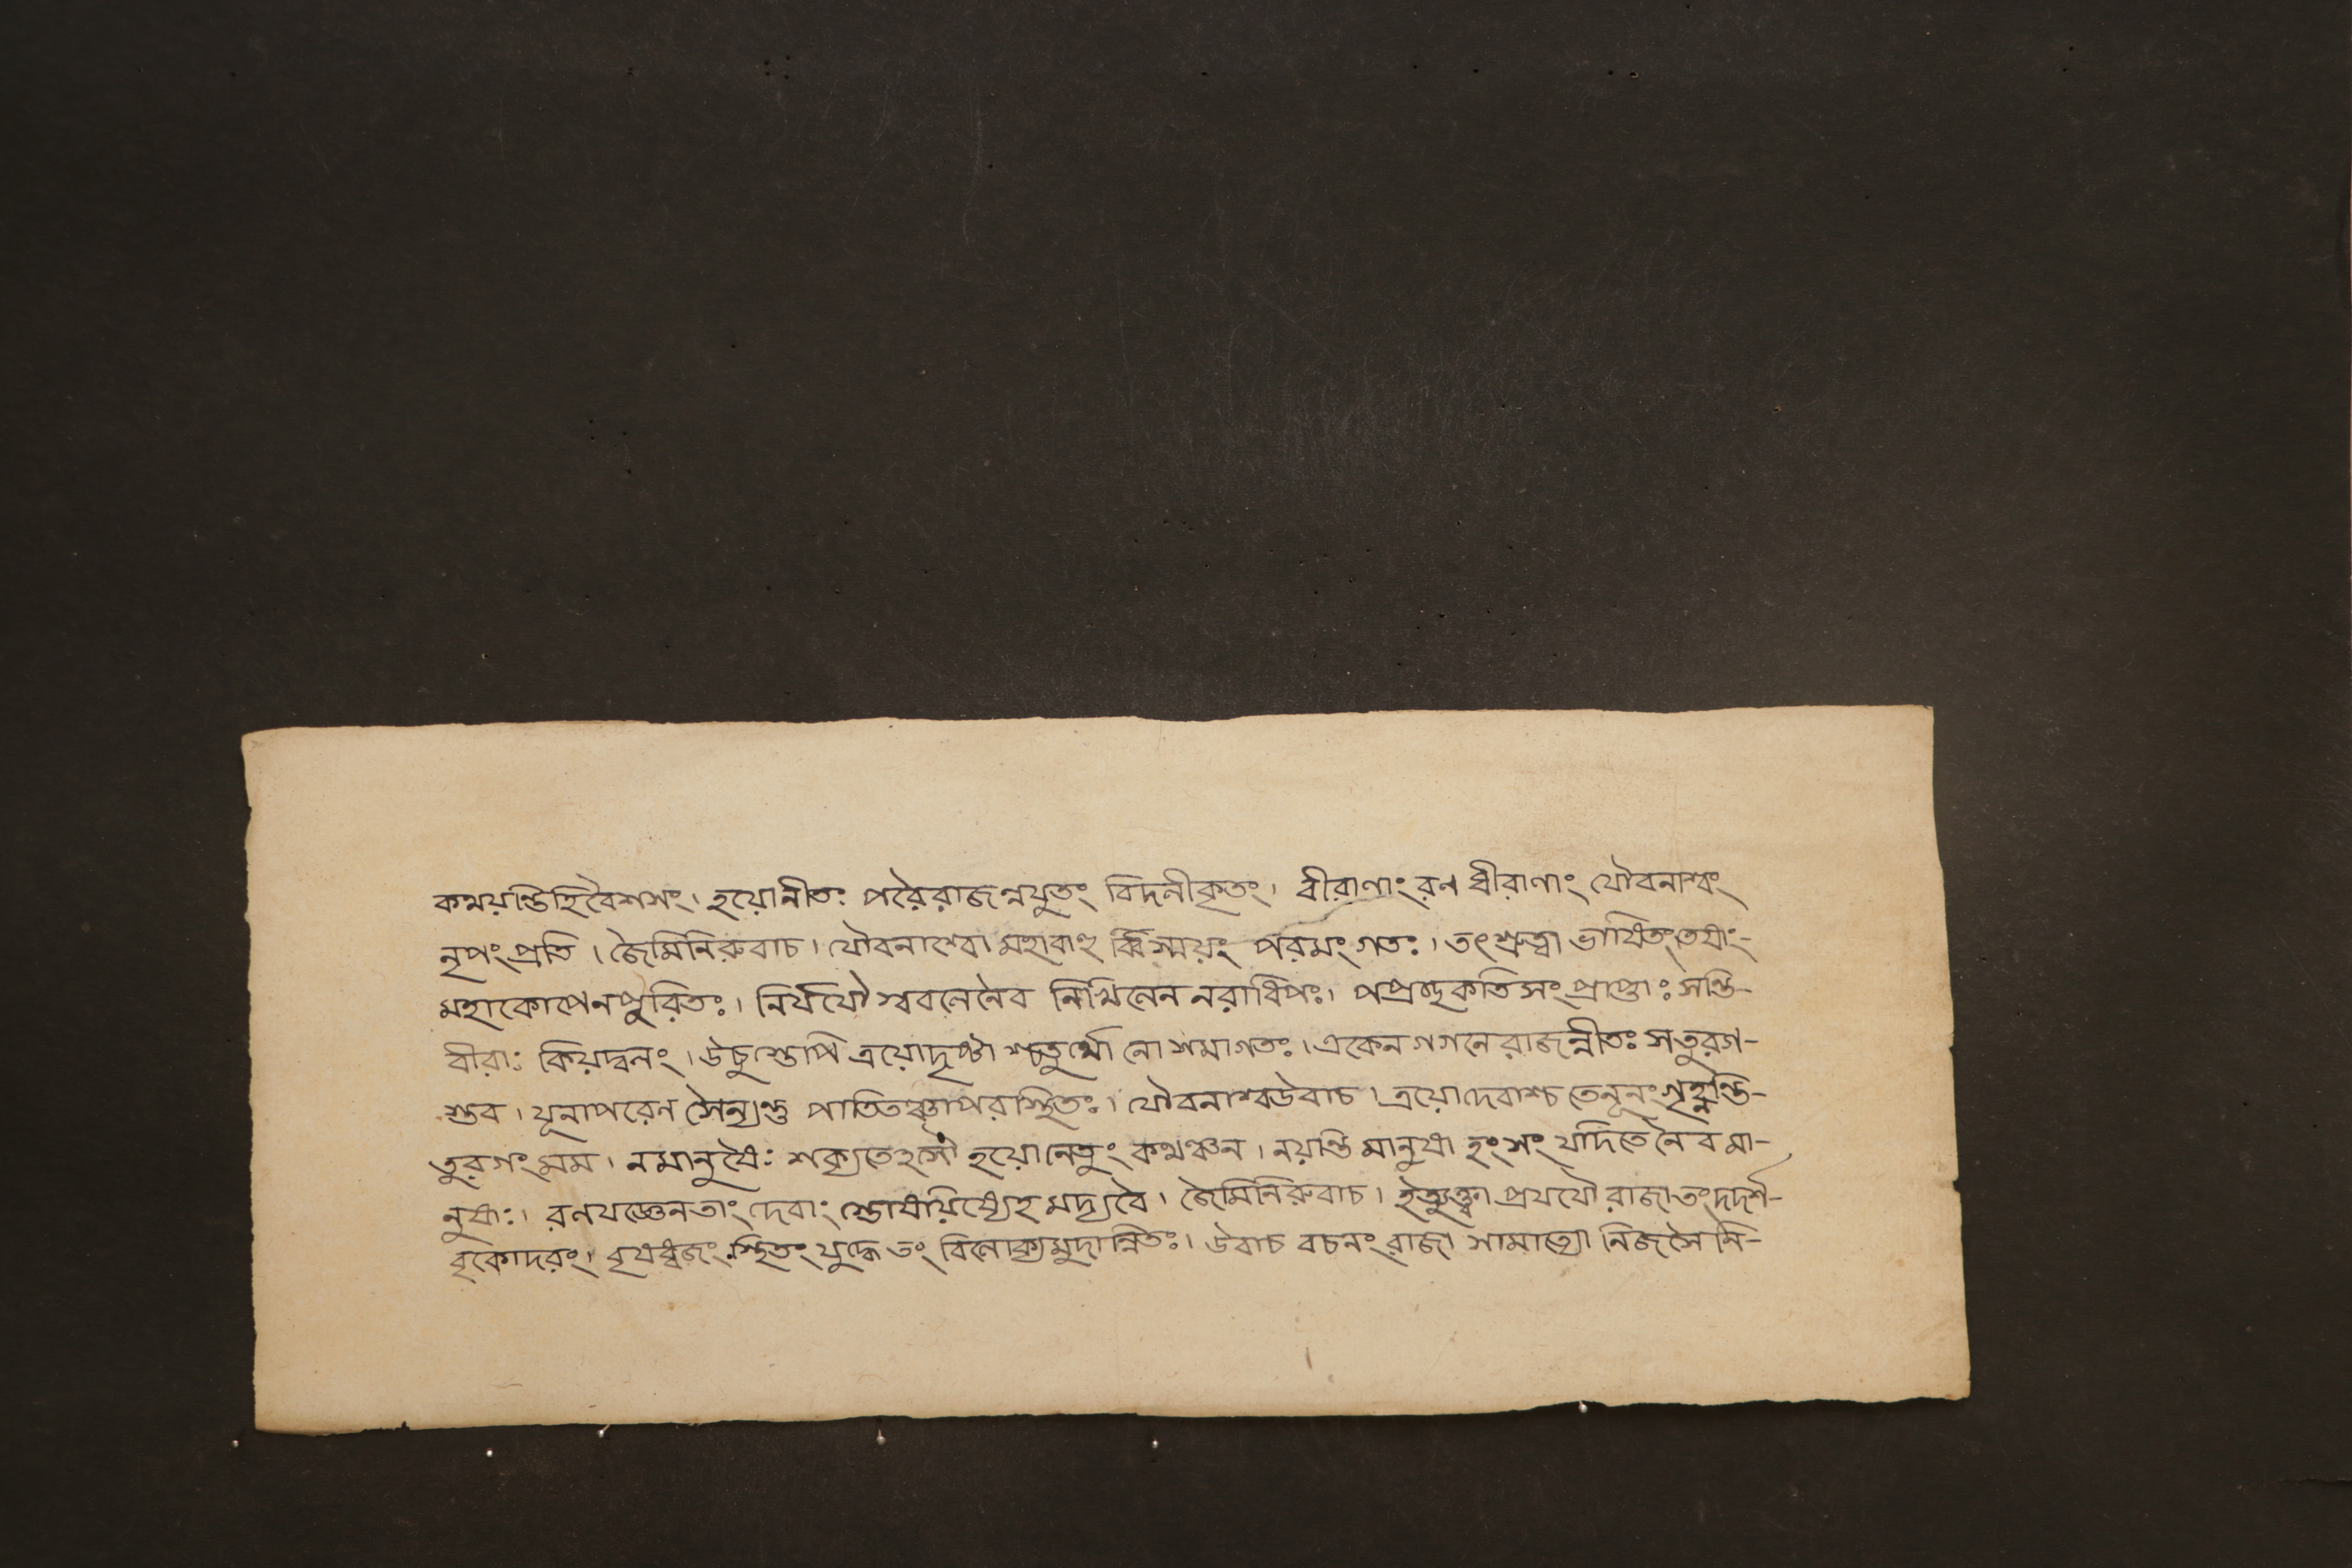 কথয়ন্তিহিবৈশসং। হয়োনীতঃ পরৈরাজন্নযুতং বিদলীকৃতং। বীরাণাং রণ ধীরাণাং যৌবনাশ্বং
নৃপংপ্রতি। জৈমিনিরুবাচ। যৌবনাশ্বো মহাবাহু র্ব্বিস্ময়ং পরমংগতঃ। তৎশ্রুত্বা ভাষিতংতেষাং-
মহাকোপেনপূরিতঃ। নির্যযৌ স্ববলেনৈব নিখিলেন নরাধিপঃ। পপ্রচ্ছকতিসংপ্রাপ্তাঃ সন্তি-
বীরাঃ কিয়দ্বলং। উচুস্তেপি ত্রয়োদৃষ্টা শ্চতুর্থো নো শমাগতঃ। একেন গগনে রাজন্নীতঃ সতুরগ-
স্তব। যূনাপরেণ সৈন্যন্তু পাতিতঞ্চাপরস্থিতঃ। যৌবনাশ্বউবাচ। ত্রয়োদেবাশ্চ তেনূনং গৃহ্নন্তি-
তুরগংমম। নমানুষৈঃ শক্যতেঽসৌ হয়োনেতুং কথঞ্চন। নয়ন্তি মানুষা হংসং যদিতে নৈব মা-
নুষাঃ। রণযজ্ঞেনতাং দেবাং স্তোষয়িষ্যেহ মদ্যবৈ। জৈমিনিরুবাচ। ইত্যুক্ত্বা প্রযযৌ রাজাতংদদর্শ-
বৃকোদরং। বৃষধ্বজং স্থিতং যুদ্ধে তং বিলোক্যমুদান্বিতঃ। উবাচ বচনং রাজা সামাত্যো নিজসৈনি-